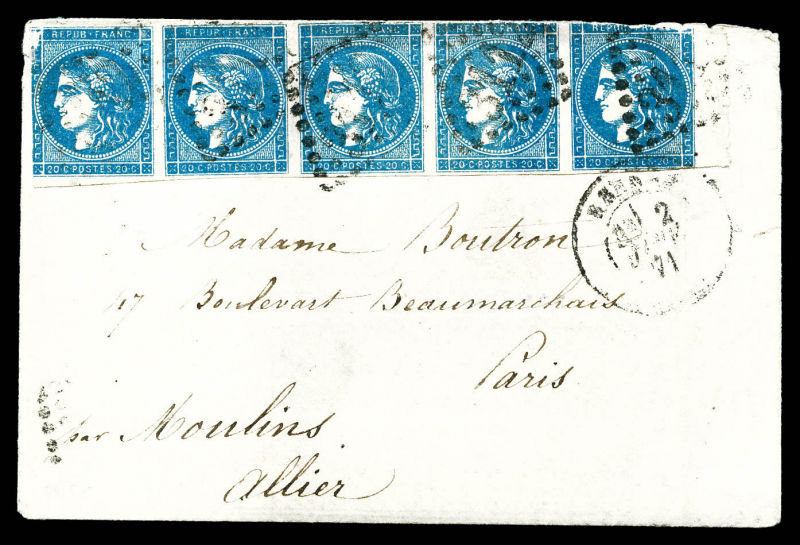 REPUB·FRANC REPUB·FRANC REPUB·FRANC REPUB·FRANC REPUB·FRANC
20·C·POSTES·20·C 20·C·POSTES·20·C 20·C·POSTES·20·C 20·C·POSTES·20·C 20·C·POSTES·20·C
2
71
Madame Boutron
47 Boulevart Beaumarchais
Paris
par Moulins
Allier